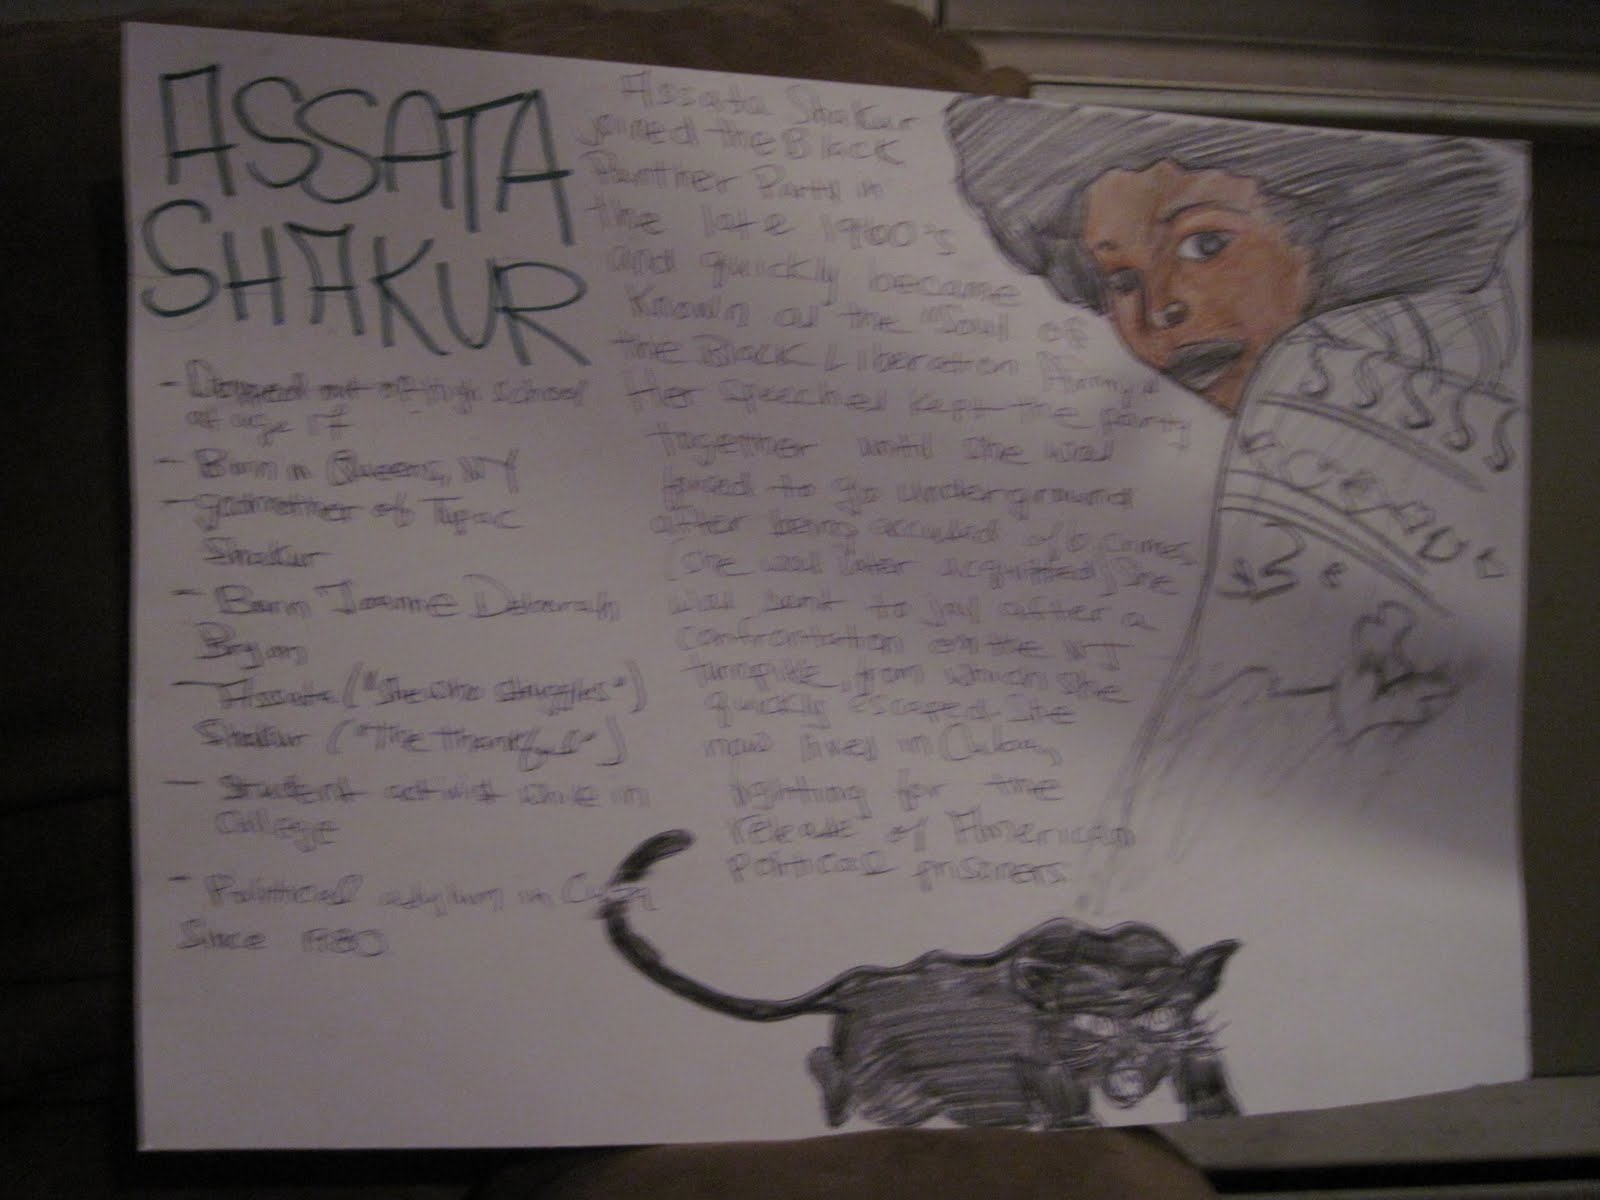 ASSATA
SHAKUR
- Dropped out of high school
at age 17
- Born in Queens, NY
- godmother of Tupac
Shakur
- Born Joanne Deborah
Bryon
- Assata ("She who struggles")
Shakur ("The thankful")
- Student activist while in
College
- Political asylum in Cuba
Since 1980
Assata Shakur
joined the Black
Panther Party in
the late 1960's
and quickly became
known as the "Soul of
the Black Liberation Army"
Her speeches kept the party
together until she was
forced to go underground
after being accused of 6 crimes,
(she was later acquitted) She
was sent to jail after a
confrontation on the NJ
turnpike, from which she
quickly escaped. She
now lives in Cuba,
fighting for the
release of American
political prisoners.